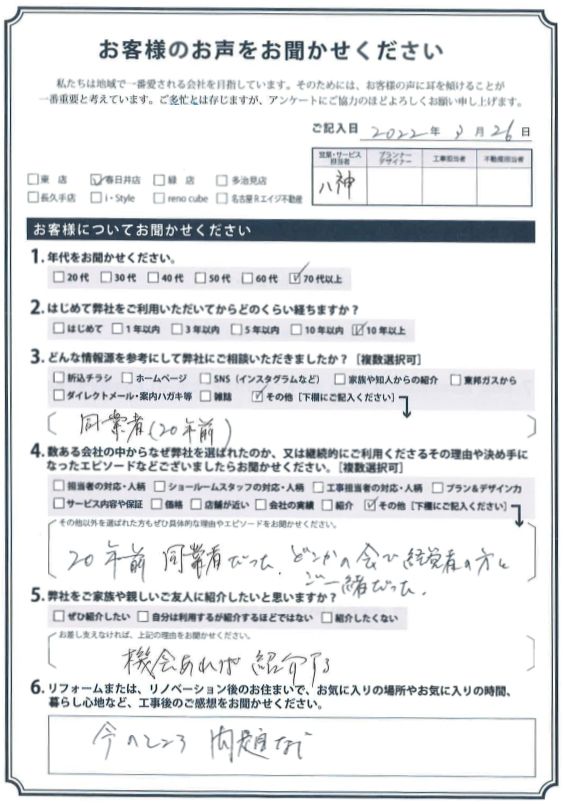 お客様のお声をお聞かせください
私たちは地域で一番愛される会社を目指しています。そのためには、お客様の声に耳を傾けることが
一番重要と考えています。ご多忙とは存じますが、アンケートにご協力のほどよろしくお願い申し上げます。
ご記入日 2022年 3月 26日
営業・サービス担当者 プランナーデザイナー 工事担当者 不動産担当者
八神
□東 店 ☑春日井店 □緑 店 □多治見店
□長久手店 □i・Style □reno cube □名古屋Rエイジ不動産
お客様についてお聞かせください
1. 年代をお聞かせください。
□20代 □30代 □40代 □50代 □60代 ☑70代以上
2. はじめて弊社をご利用いただいてからどのくらい経ちますか？
□はじめて □1年以内 □3年以内 □5年以内 □10年以内 ☑10年以上
3. どんな情報源を参考にして弊社にご相談いただきましたか？［複数選択可］
□折込チラシ □ホームページ □SNS（インスタグラムなど） □家族や知人からの紹介 □東邦ガスから
□ダイレクトメール・案内ハガキ等 □雑誌 ☑その他［下欄にご記入ください］
同業者(20年前)
4. 数ある会社の中からなぜ弊社を選ばれたのか、又は継続的にご利用くださるその理由や決め手に
なったエピソードなどございましたらお聞かせください。［複数選択可］
□担当者の対応・人柄 □ショールームスタッフの対応・人柄 □工事担当者の対応・人柄 □プラン＆デザイン力
□サービス内容や保証 □価格 □店舗が近い □会社の実績 □紹介 ☑その他［下欄にご記入ください］
その他以外を選ばれた方もぜひ具体的な理由やエピソードをお聞かせください。
20年前 同業者だった、どこかの会で経営者の方と
ご一緒だった.
5. 弊社をご家族や親しいご友人に紹介したいと思いますか？
□ぜひ紹介したい □自分は利用するが紹介するほどではない □紹介したくない
お差し支えなければ、上記の理由をお聞かせください。
機会あれば 紹介する
6. リフォームまたは、リノベーション後のお住まいで、お気に入りの場所やお気に入りの時間、
暮らし心地など、工事後のご感想をお聞かせください。
今のところ 問題なし